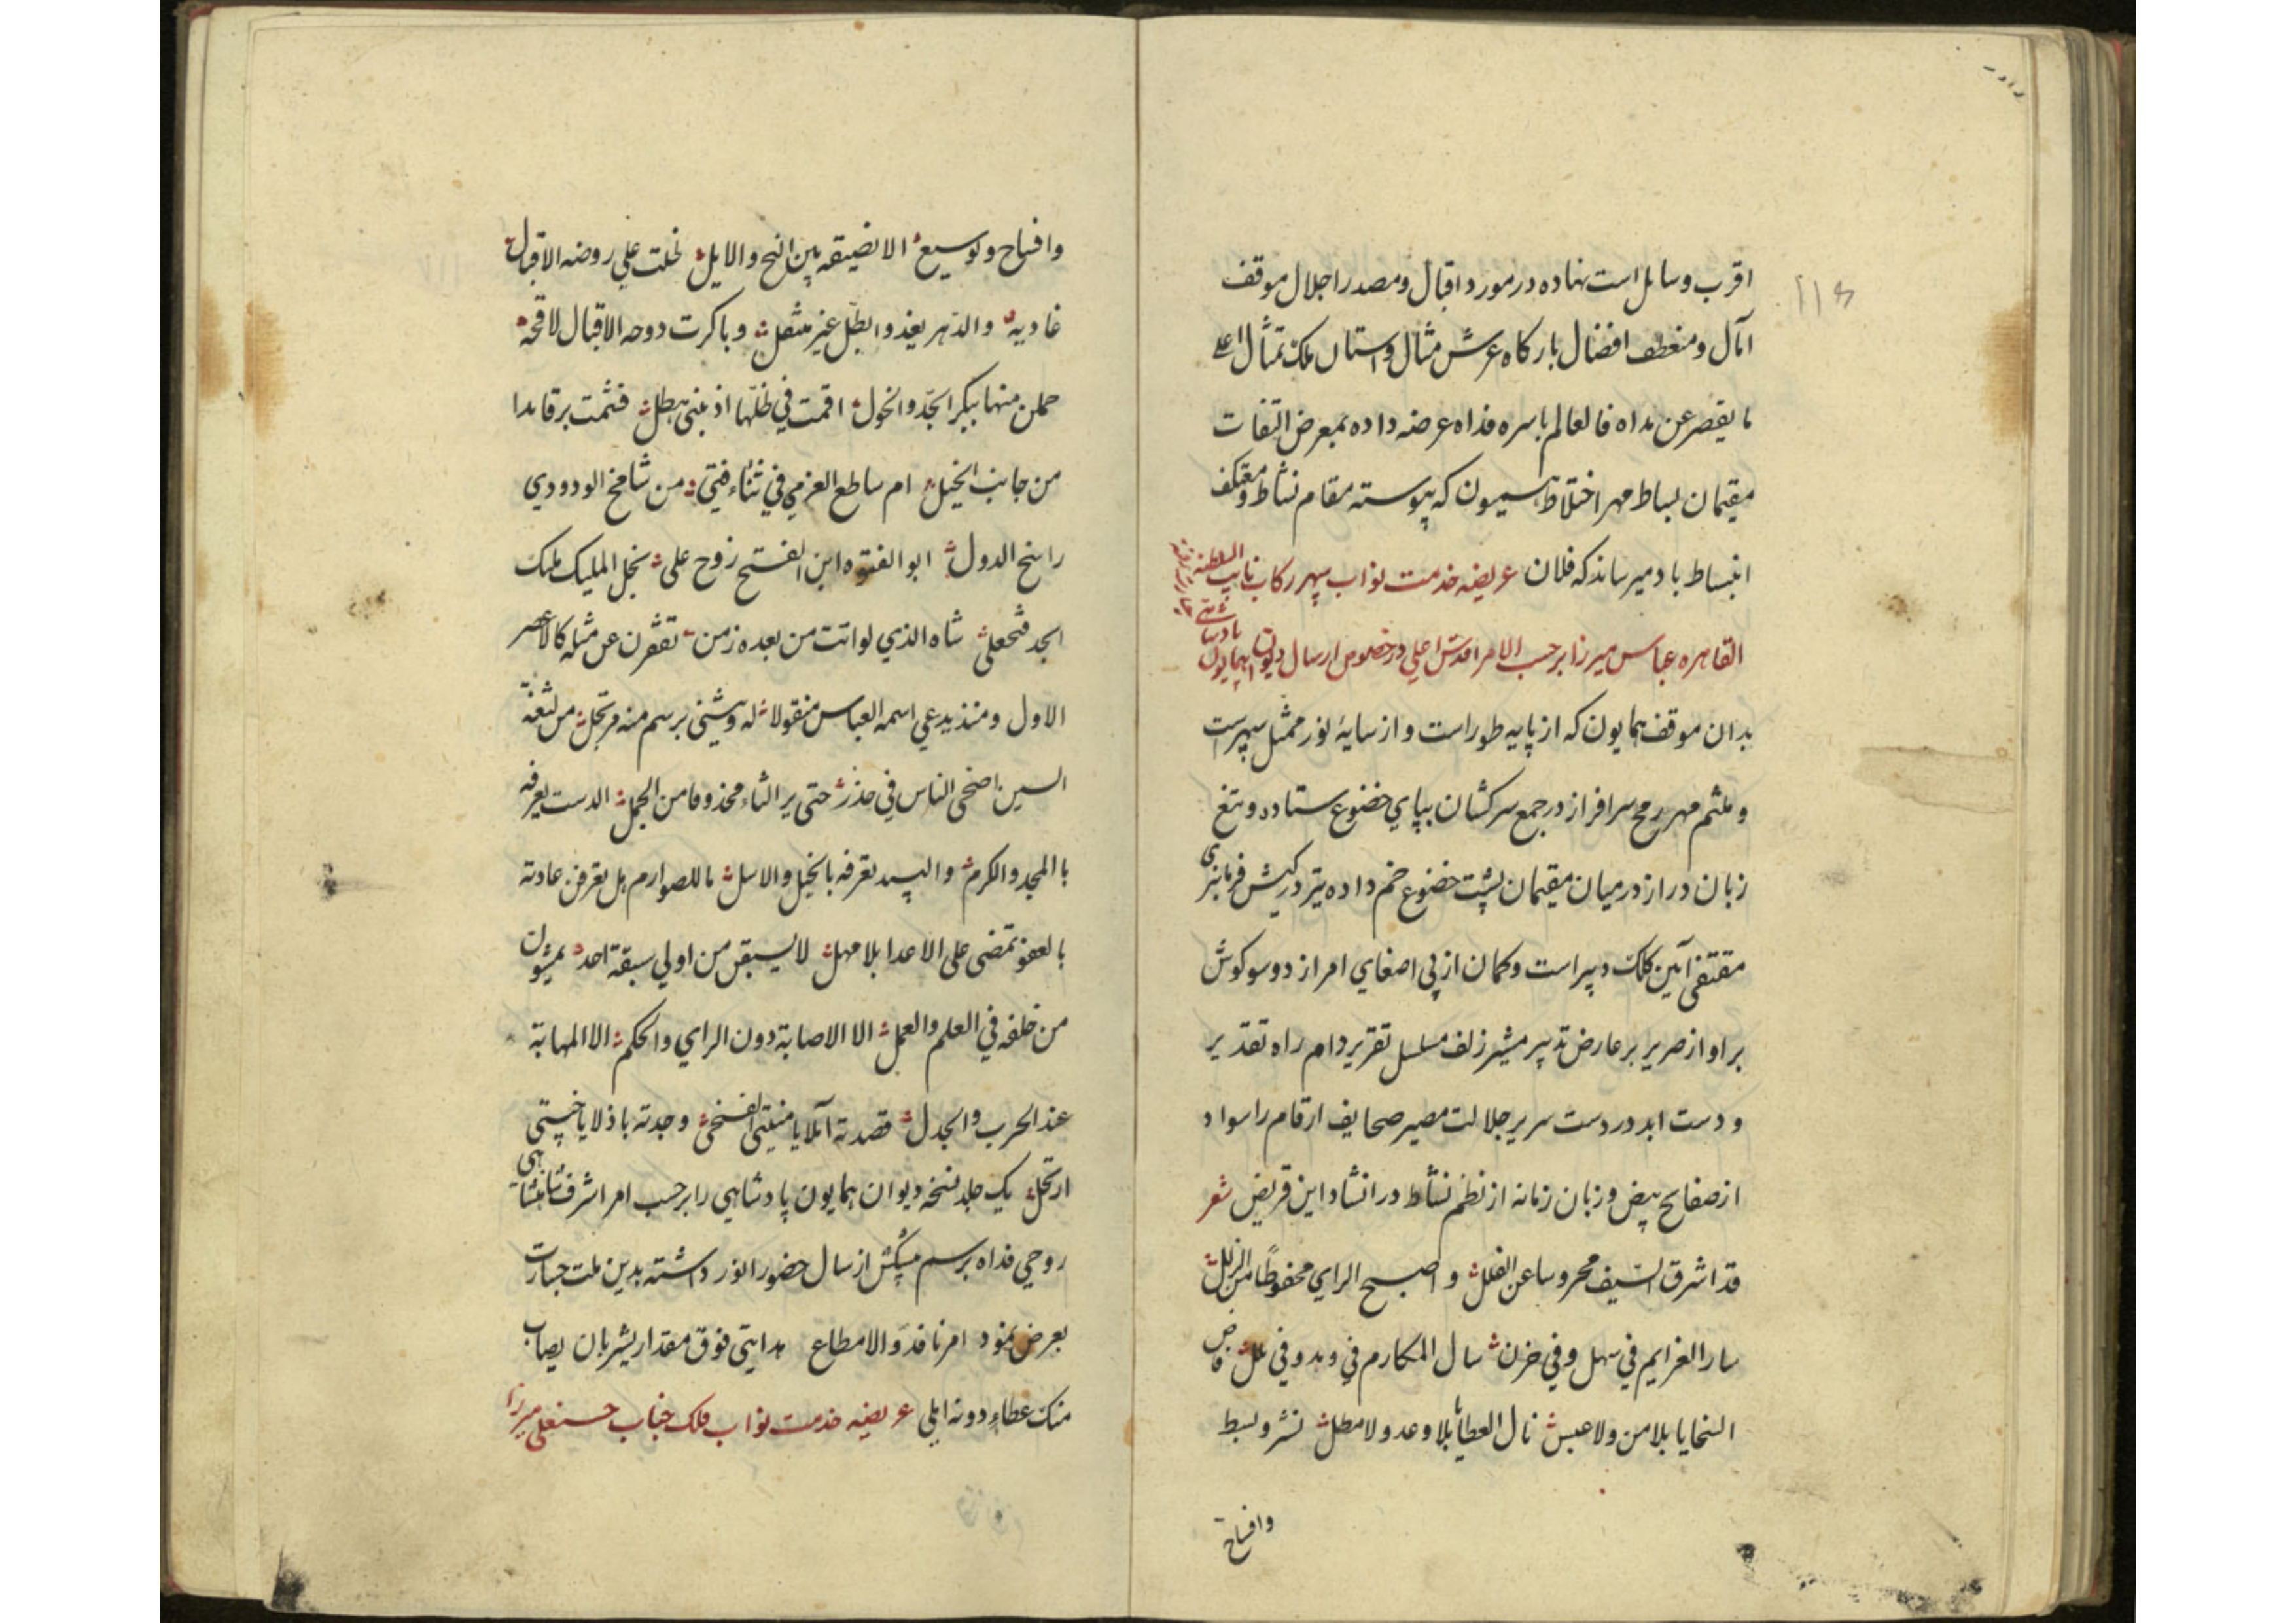 ۱۱۶
اقرب وسایل است نهاده در مورد اقبال و مصدر اجلال موقف
آمال و منعطف افضال بارکاه عرش مثال و استان ملک تمثال اعلی
ما یقصر عن مداه فالعالم باسره فداه عرضه داده بمعرض التفات
مقیمان بساط مهر اختلاط میمون که پیوسته مقام نشاط و معتکف
انبساط باد میرساند که فلان عریضه خدمت نواب سپهر رکاب نایب السلطنه
القاهره عباس میرزا برحسب الامر اقدس اعلی در خصوص ارسال دیوان همایون پادشاهی
بدان موقف همایون که از پایه طور است و از سایهٔ نور ممثل سپهر است
و ملثم مهر رمح سرافراز در جمع سرکشان بپای خضوع ستاده و تیغ
زبان دراز در میان مقیمان پشت خضوع خم داده تیر در کیش فرمانبری
مقتفی آیین کلک دبیر است و کمان از پی اصغای امر از دو سو کوش
بر اواز صریر بر عارض تدبیر مشیر زلف مسلسل تقریر دام راه تقدیر
و دست ابد در دست سریر جلالت مصیر صحایف ارقام را سواد
از صفایح بیض و زبان زمانه از نظم نشاط در انشاد این قریض شعر
قد اشرق السّیف محروسا عن الفلل و اصبح الرای محفوظًا من الزلل
سار العزایم فی سهل و فی حزن سال المکارم فی وبد و فی ملل فاض
السخایا بلا من ولا عبس نال العطایا بلا وعد ولا مطل نشر و بسط
وافتتاح
وافتتاح و توسیع الا نضیقه بین النح والایل نخلت علی روضه الاقبال
غادیه والدّهر یغذو ابطّل غیر منثقل و باکرت دوحه الاقبال لاقحه
حملن منها ببکر الجدّ والخول اقمت فی ظلّها اذ بنثی بطل فثمت برقا بدا
من جانب الخیل ام ساطع العزمی فی ثناء فتی من شامخ الود ودی
راسخ الدول ابو الفتوه ابن الفتح زوح علی نجل الملیک ملیک
الجد فتحعلی شاه الذی لواتت من بعده زمن تقثرن عن مثله کالاعصر
الاول و منذ یدعی اسمه العباس منقولا له وشینی برسم منه مرتجل من لثغة
السین اضحی الناس فی حذر حتی یر الثاء محذوفا من الجمل الدست یعرفه
با المجد والکرم والبید تعرفه بالخیل والاسل ما للصوارم بل تعرفن عادته
بالعفو تمضی علی الاعدا بلا مهل لا یسبقن من اولی سبقة احد یمشون
من خلفه فی العلم والعمل الا الاصابة دون الرای والحکم الا المهابة
عند الحرب والجدل قصدته آملا یا منیتی افتخی وجدته باذلا یا خیبتی
ارتحل یک جلد نسخه دیوان همایون پادشاهی را برحسب امر اشرف شاهنشاهی
روحی فداه برسم پیشکش ارسال حضور انور داشته بدین ملت جسارت
بعرض نمود امر نافذ و الا مطاع هدایتی فوق مقدار یشربان یصاب
منک عطاءِ دونه املی عریضه خدمت نواب فلک جناب حسنعلی میرزا